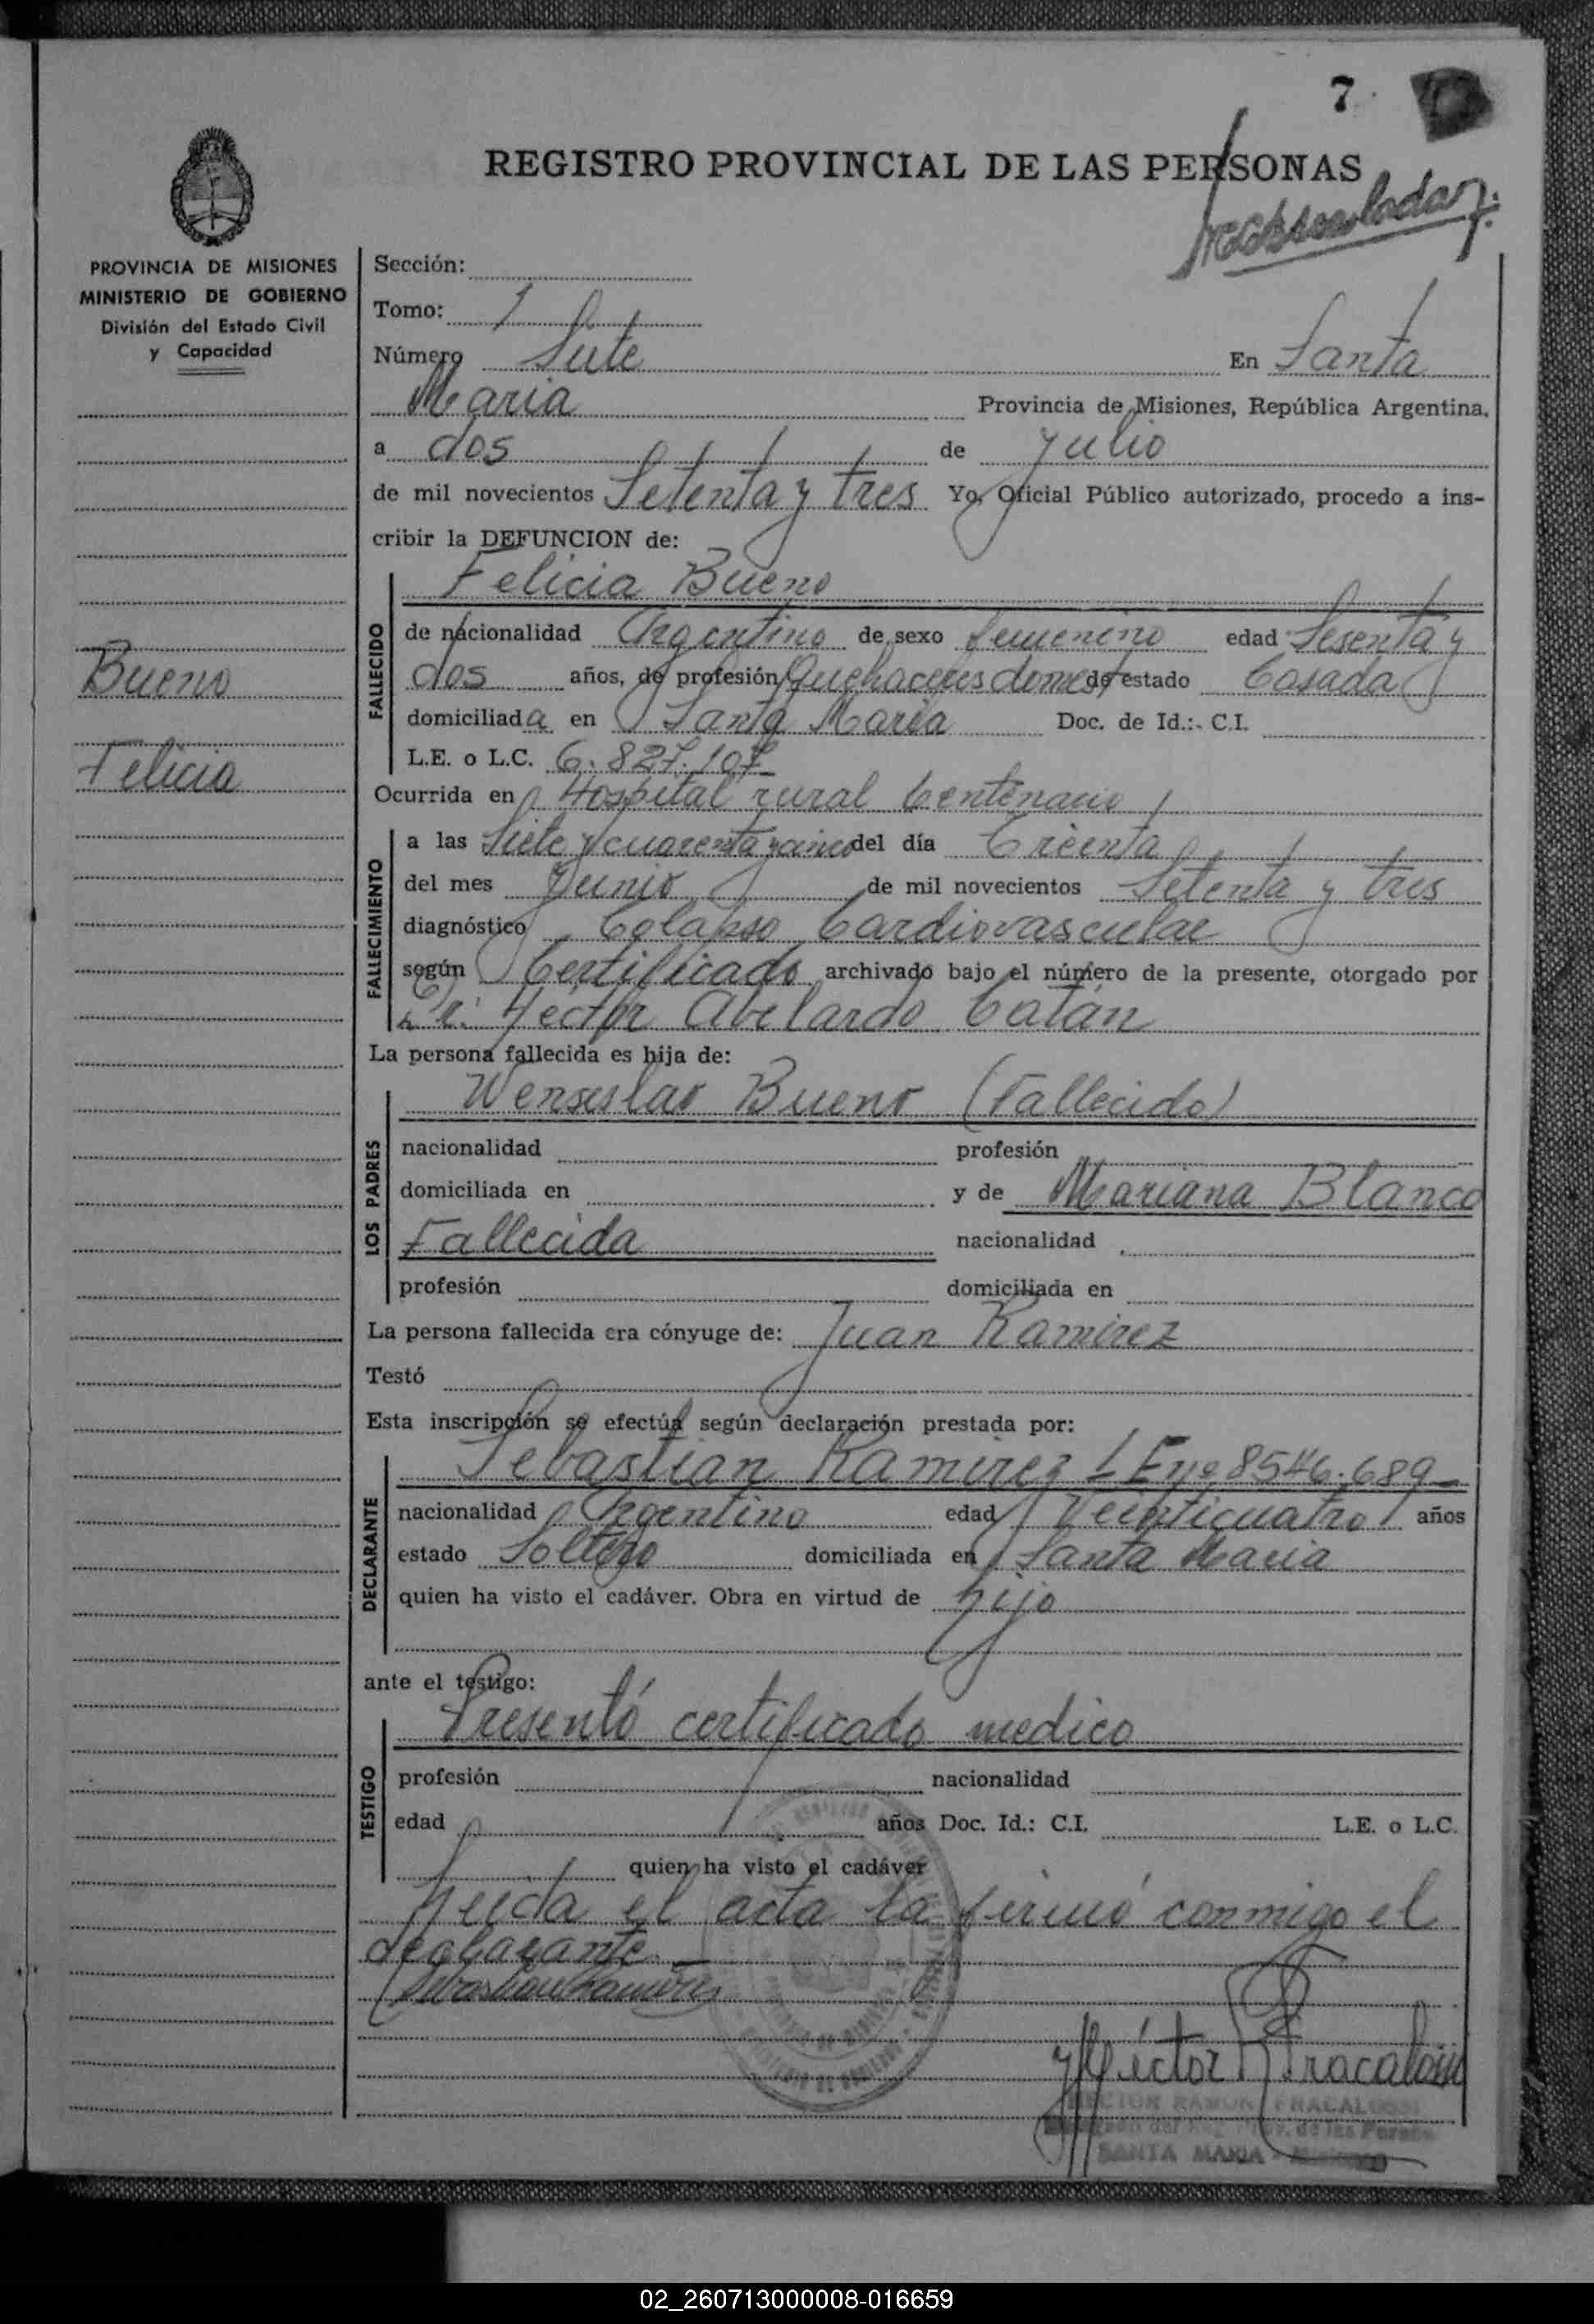 7
REGISTRO PROVINCIAL DE LAS PERSONAS
PROVINCIA DE MISIONES
MINISTERIO DE GOBIERNO
División del Estado Civil
y Capacidad
Bueno
Felicia
Sección:
Tomo: 1
Número Siete En Santa
Maria Provincia de Misiones, República Argentina,
a dos de Julio
de mil novecientos Setenta y tres Yo, Oficial Público autorizado, procedo a ins-
cribir la DEFUNCION de:
Felicia Bueno
FALLECIDO
de nacionalidad Argentino de sexo femenino edad Sesenta y
dos años, de profesión Quehaceres domest de estado Casada
domiciliada en Santa Maria Doc. de Id.:- C.I.
L.E. o L.C. 6.827.107
Ocurrida en Hospital rural Centenario
FALLECIMIENTO
a las Siete y cuarenta y cinco del día Treinta
del mes Junio de mil novecientos Setenta y tres
diagnóstico Colapso Cardiovascular
según Certificado archivado bajo el número de la presente, otorgado por
Dr. Hector Abelardo Catán
La persona fallecida es hija de:
LOS PADRES
Wenseslao Bueno (Fallecido)
nacionalidad profesión
domiciliada en y de Mariana Blanco
Fallecida nacionalidad
profesión domiciliada en
La persona fallecida era cónyuge de: Juan Ramirez
Testó
Esta inscripción se efectúa según declaración prestada por:
DECLARANTE
Sebastian Ramirez L E nº 8546.689
nacionalidad Argentino edad Veinticuatro años
estado Soltero domiciliada en Santa Maria
quien ha visto el cadáver. Obra en virtud de hijo
ante el testigo:
TESTIGO
Presentó certificado medico
profesión nacionalidad
edad años Doc. Id.: C.I. L.E. o L.C.
quien ha visto el cadáver
leida el acta la firmó conmigo el
declarante.
Sebastian Ramirez
Héctor R Fracalossi
HECTOR RAMON FRACALOSSI
SANTA MARIA - Misiones
02_260713000008-016659